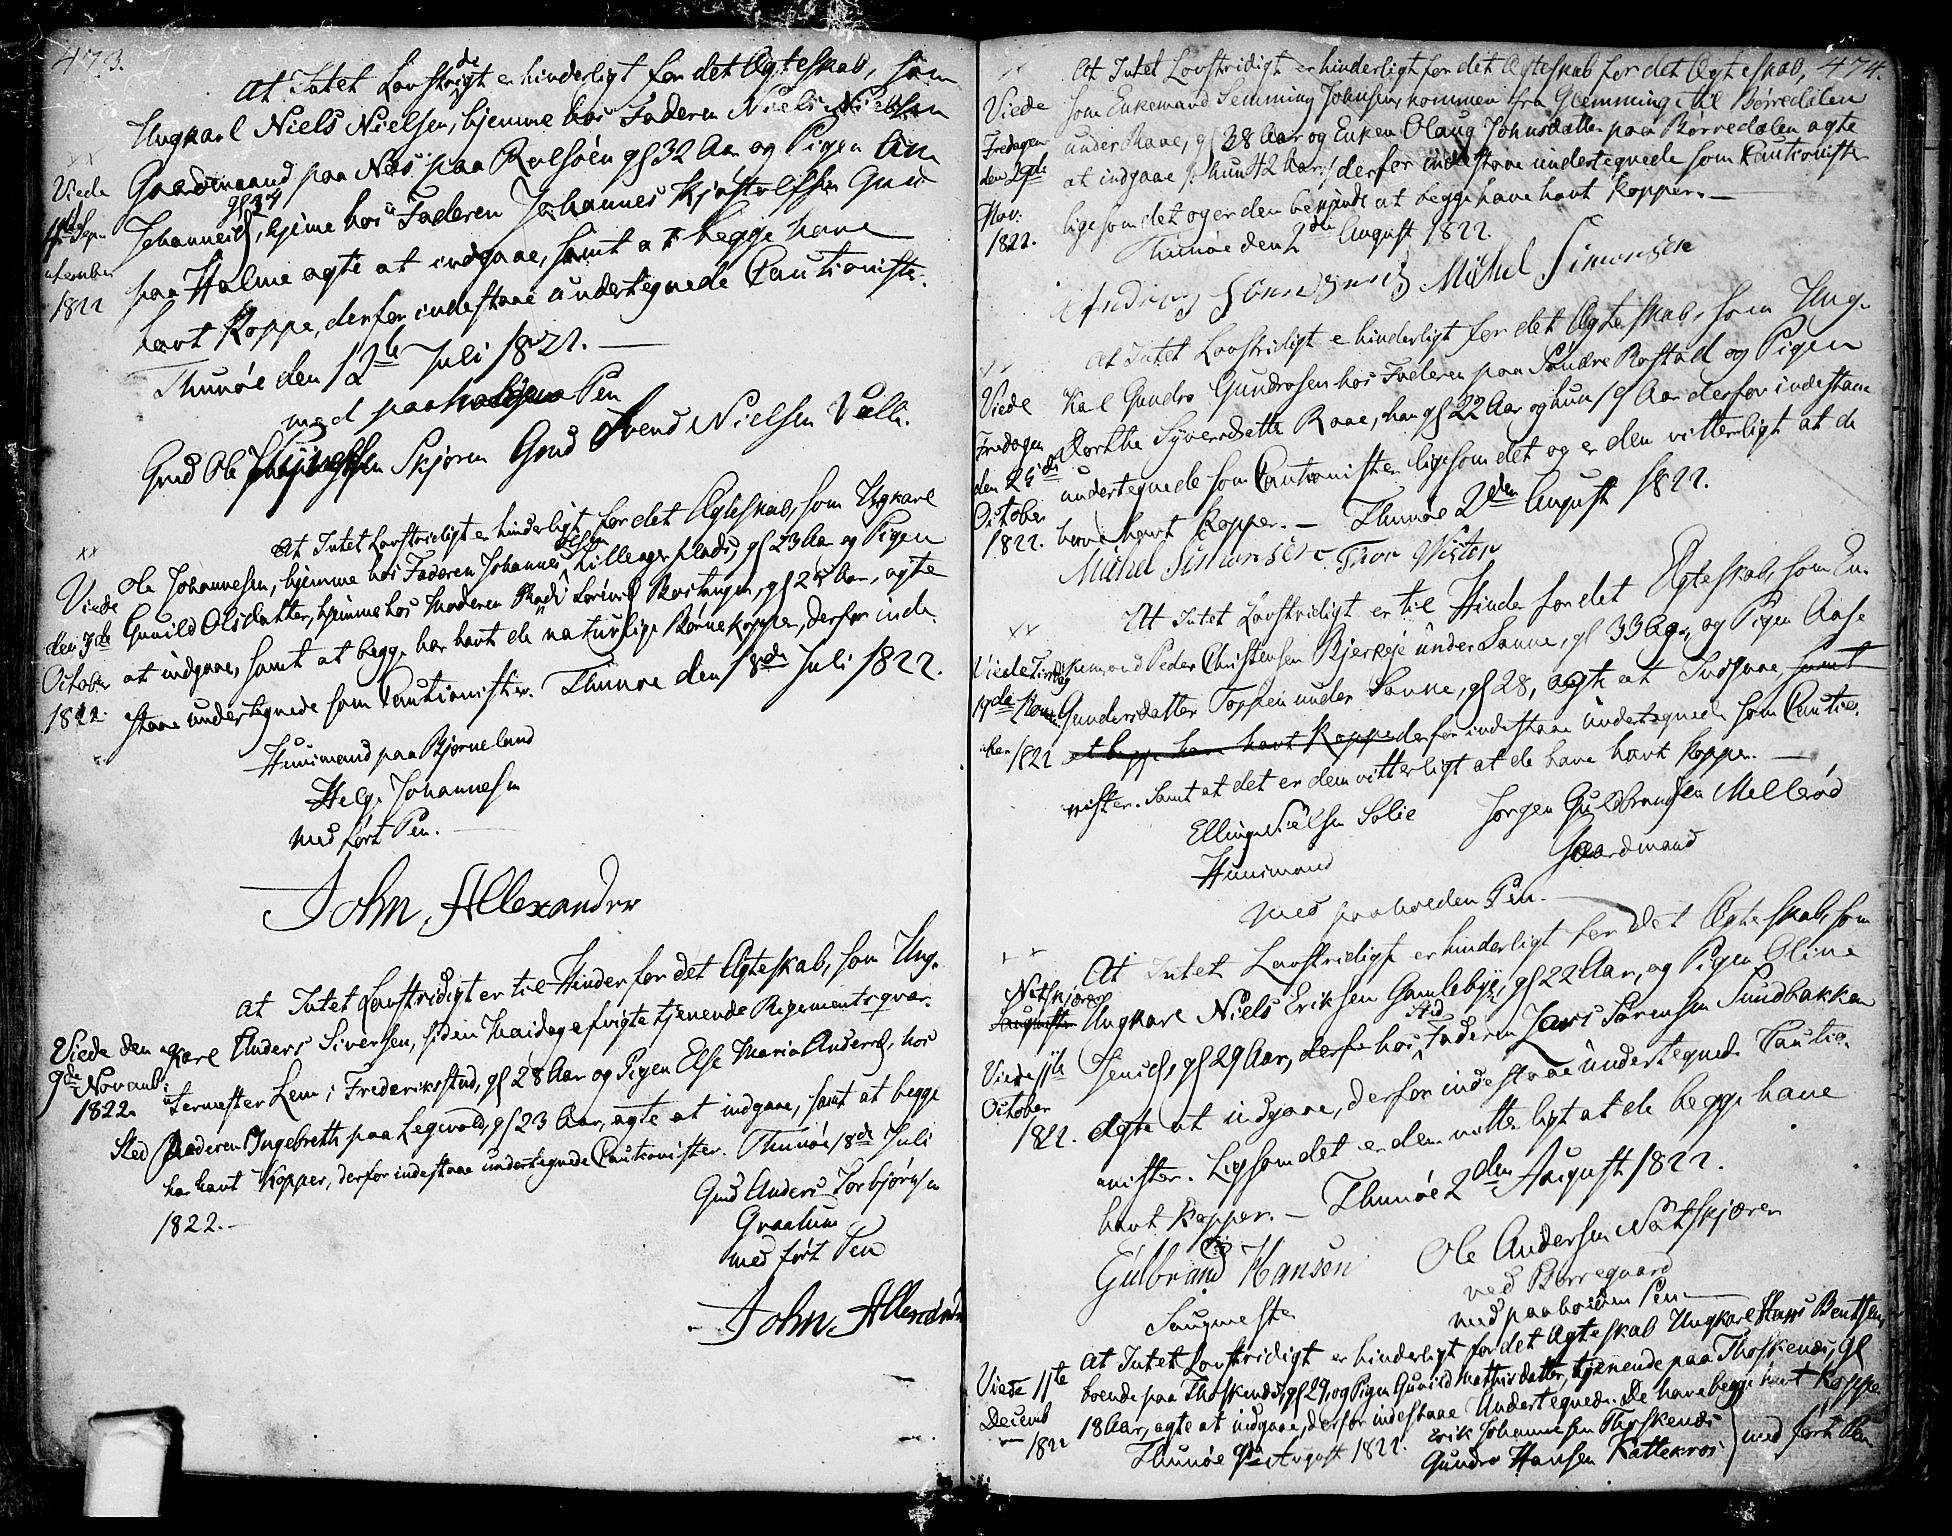 473.
At Intet Lovstridigt er hinderligt for det Ægteskab, som
Ungkarl Niels Nielsen, hjemme hos Faderen Niels Nielsen
Gaardmand paa Næs paa Rolfsøen gl 32 Aar og Pigen An
Johannesd, gl 24, hjeme hos Faderen Johannes
paa Holme agte at indgaae, samt at begge have
havt Koppe, derfor indestaae undertegnede Cautionister.
Thunøe den 12te Juli 1822. —
med paaholden Pen
Gmd Ole Skjøren Gmd Svend Nielsen Valle.
xx
Viede
Sep-
tember
1822
At Intet Lovstridigt er hinderligt for det Ægteskab, som Ungkarl
Ole Johannesen, hjemme hos Faderen Johannes Olsen Lilleager plads, gl 23 Aar og Pigen
Gunild Olsdatter, hjemme hos Moderen gl 25 Aar, agte
at indgaae, samt at begge har havt de naturlige Børnekopper, derfor inde-
staae undertegnede som Cautionister. Thunøe den 18de Juli 1822.
xx
Viede
den 3de
October
1822.
Huusmand paa Bjørneland
Helge Johannesen
med ført Pen.
John Allexander
At Intet Lovstridigt er til Hinder for det Ægteskab, som Ung-
karl Anders Siversen, siden tjenende Regimentsqvar-
termester Lem i Frederiksstad, gl 28 Aar og Pigen Else Maria Andersd, hos
Sted Faderen Ingebreth paa Legvold, gl 23 Aar, agte at indgaae, samt at begge
har havt Kopper, derfor indestaae undertegnede Cautionister. Thunøe 18de Juli
1822. —
Viede den
9de Novemb:
1822.
Gmd Anders Torbjørnsen
Graalum
med ført Pen
John Allexander
474.
At Intet Lovstridigt er hinderligt for det Ægteskab for det Ægteskab,
som Enkemand Semming Johnsen, kommen fra Glemminge til Børredalen
under Raae, gl 38 Aar og Enken Olaug Johnsdatter paa Børredalen agte
at indgaae /: hun 42 Aar :/ derfor indestaae undertegnede som Cautionister
ligesom det og er den bekjendt at begge have havt Kopper. —
Thunøe den 2den August 1822.
Michel Simonsen
Viede
Fredagen
den 29de
Nov:
1822.
At Intet Lovstridigt e hinderligt for det Ægteskab, som Ung-
Karl Gundro Gundrosen hos Faderen paa Søndre Rostad og Pigen
Dorthe Syversdatter Raae, han gl 22 Aar og hun 19 Aar derfor indestaae
undertegnede som Cautionister ligesom det og er den vitterligt at de
have havt Kopper. — Thunøe 2den August 1822.
Michel Simonsen Thor
Viede
Fredagen
den 25de
October
1822.
At Intet Lovstridigt er til Hinder for det Ægteskab, som En-
kemand Peder Christensen Bjerkeje under Sanne, gl 33 Aar, og Pigen Aase
Gundersdatter Toppen under Sanne, gl 28, agte at Indgaae samt
at begge have havt Koppe derfor indestaae undertegnede som Cautio-
nister. Samt at det er dem vitterligt at de have havt Kopper. —
xx
Viede Tirsdag
Nov-
1822
Elling Nielsen Solie Jørgen Guldbrandsen Mellerød
Huusmand Gaardmand
med paaholden Pen. —
At Intet Lovstridigt er hinderligt for det Ægteskab, som
Ungkarl Niels Eriksen Gamlebye, gl 22 Aar, og Pigen Oline
gl 29 Aar, derfor hos Sted Faderen Lars Sørensen Sundbakken
Agte at indgaae, derfor indestaae undertegnede Cautio-
nister. Ligesom det er dem vitterligt at de begge have
havt Kopper. — Thunøe 2den August 1822.
Natskjæren
Saugmester
Viede 11te
October
1822.
Gulbrand Hansen
Saugmester
Ole Andersen Natskjæren
ved Borregaard
med paaholden Pen
At Intet Lovstridigt er hinderligt for det Ægteskab Ungkarl Hans Bentsen
boende paa Thoskends, gl 29, og Pigen Gunild Mathisdatter, tjenende paa Thoskends, gl
18 Aar, agte at indgaae, derfor indestaae Undertegnede. De have begge havt Kopper
Thunøe 9de August 1822.
Erik Johannesen Thoskends
Gundro Hansen Kattekros
med ført Pen
Viede 11te
Decemb
1822